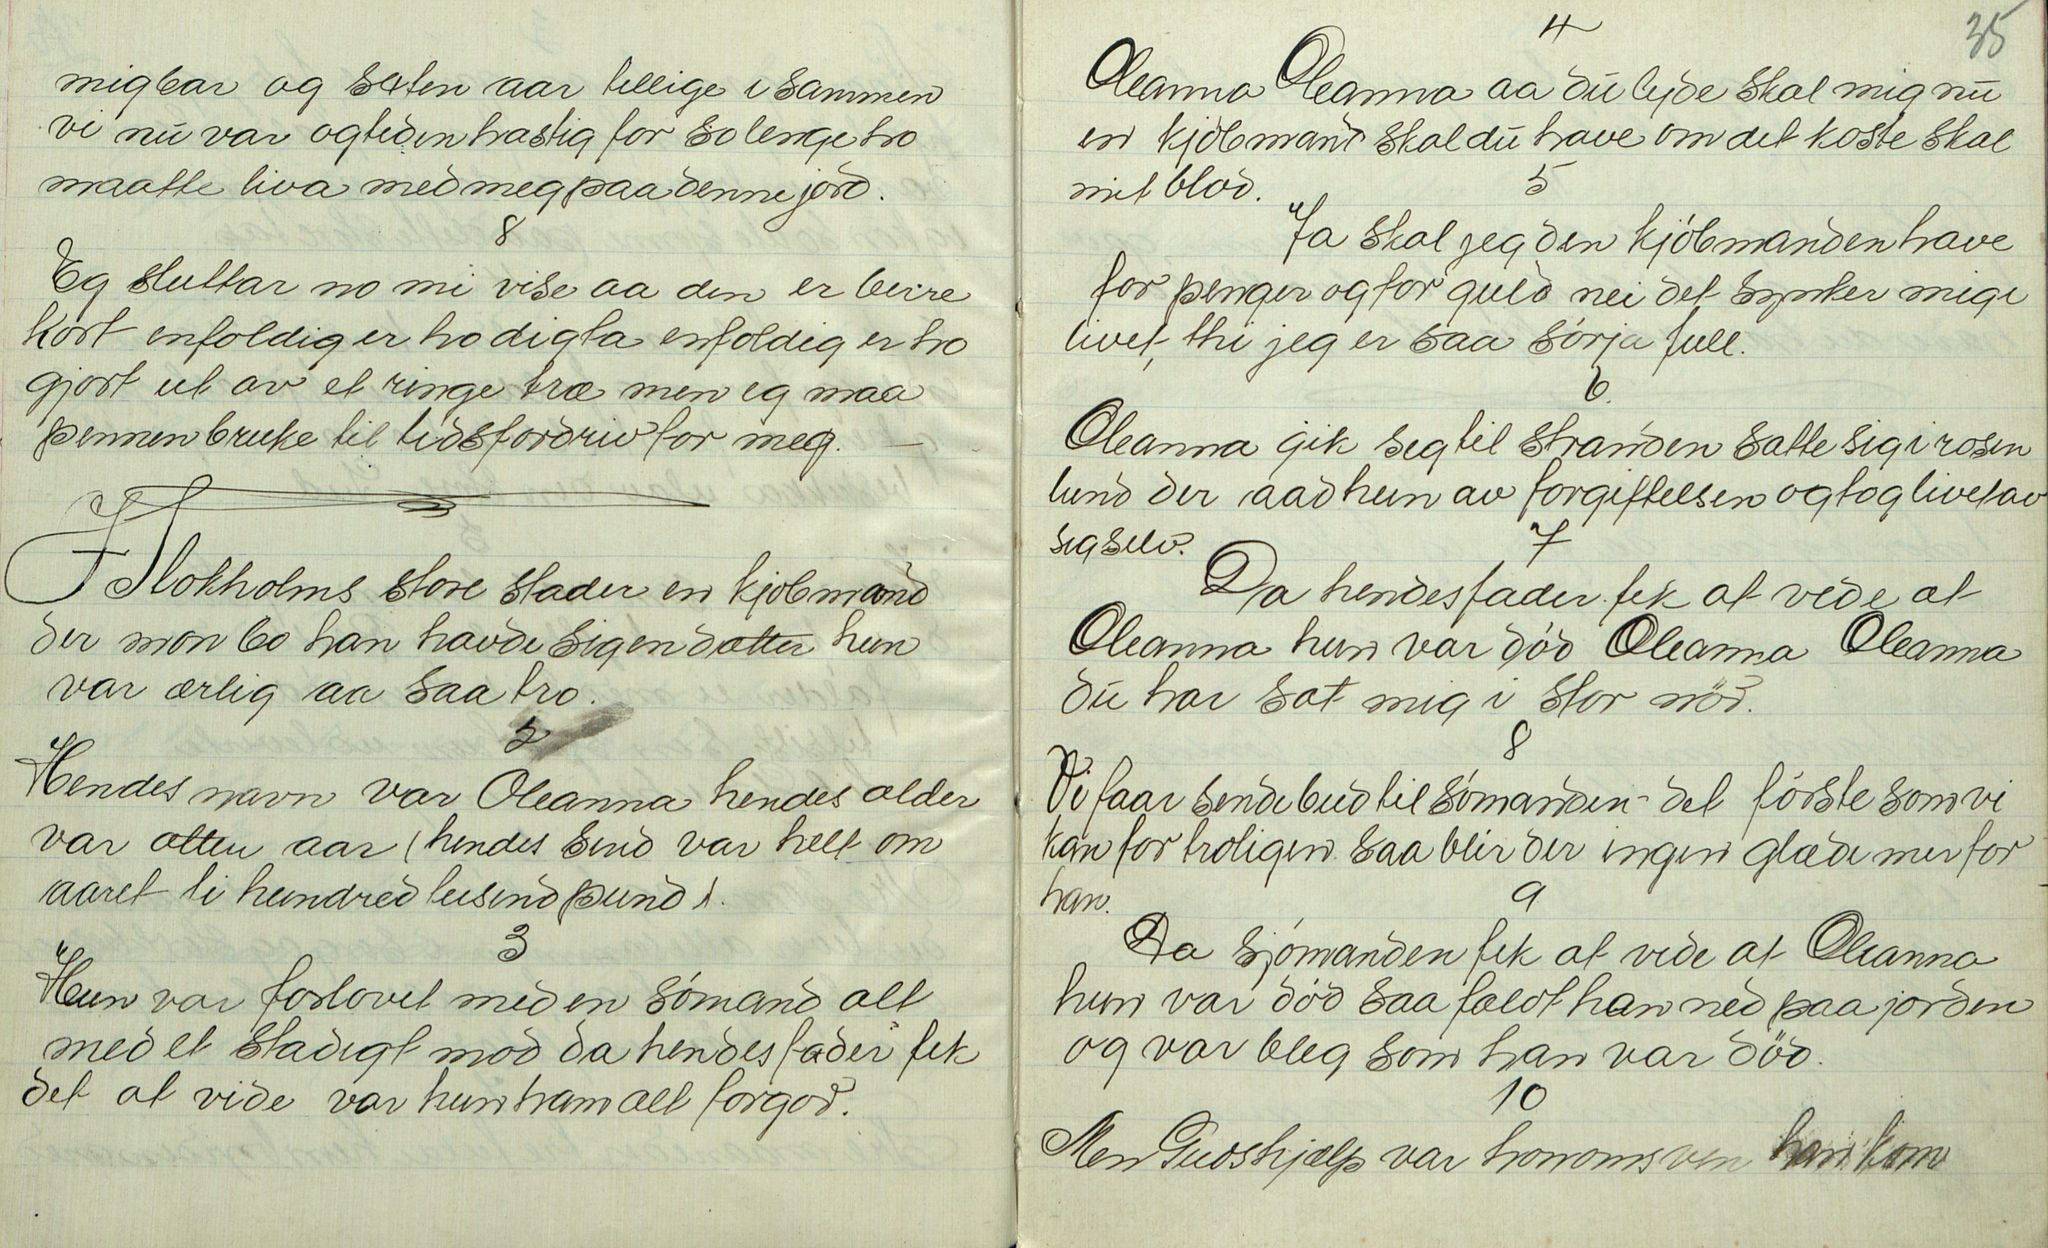 mig bar og seksten aar tillige i sammen
vi nu var og tiden hastig for so lenge ho
maatte liva med meg paa denne jord.
8
Eg sluttar no mi vise aa den er berre
kort enfoldig er ho digta enfoldig er ho
gjort ut av et ringe træ men eg maa
pennen bruke til tidsfordriv for meg. —
I Stokholms store stader en kjøbmand
der mon bo han havde sig en datter hun
var ærlig aa saa tro.
2
Hendes navn var Oleanna hendes alder
var atten aar (hendes sund var helt om
aaret ti hundred tusind pund).
3
Hun var forlovet med en sømand alt
med et stadigt mod da hendes fader fik
det at vide var hun ham alt for god.
35
4
Oleanna Oleanna aa du lyde skal mig nu
en kjøbmand skal du have om det koste skal
mit blod.
5
Ja skal jeg den kjøbmanden have
for penger og for guld nei det synker mig i
livet, thi jeg er saa sørja full.
6.
Oleanna gik seg til stranden satte sig i rosen
lund der aad hun av forgiftelsen og tog livet av
seg selv.
7
Da hendes fader fik at vide at
Oleanna hun var død Oleanna Oleanna
du har sat mig i stor nød.
8
Vi faar sende bud til sømanden det første som vi
kan for troligen saa blir der ingen glæde mer for
han.
9
Da sjømanden fik at vide at Oleanna
hun var død saa faldt han ned paa jorden
og var bleg som han var død.
10
Men Guds hjælp var honoms ven han kom